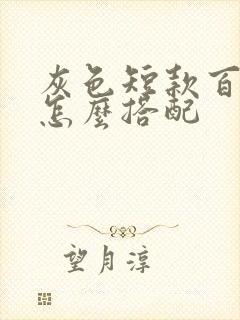 灰色短款百
怎麼搭配
望月淳